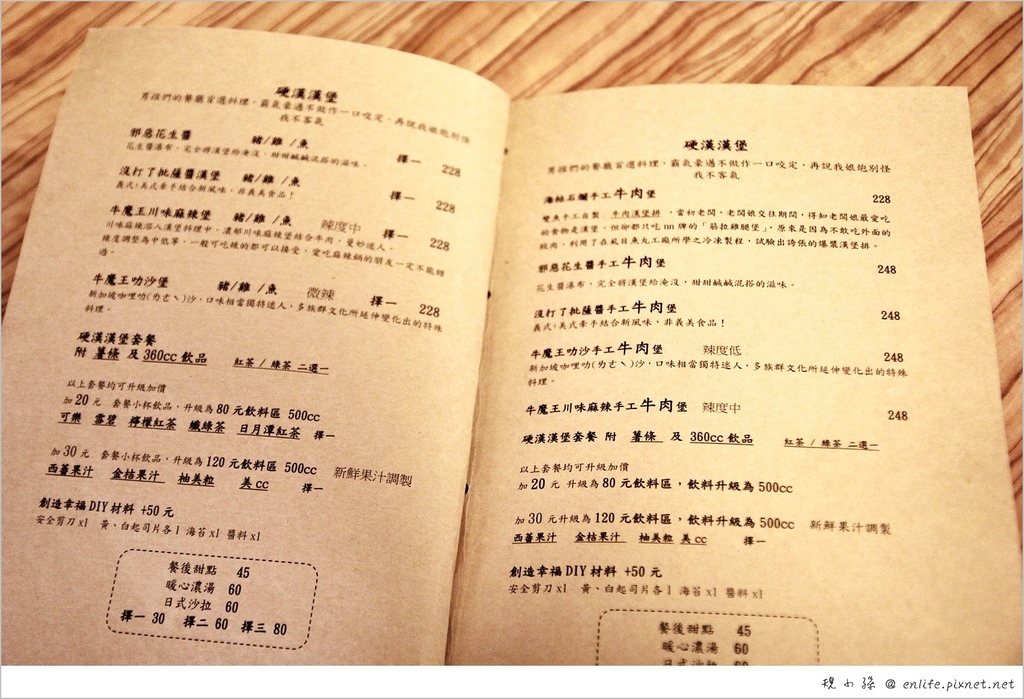 硬漢漢堡
男孩們的餐廳首選料理，霸氣豪邁不做作一口咬定，再說我娘炮別怪
我不客氣
邪惡花生醬 豬/雞/魚 擇一 228
花生醬瀑布，完全將漢堡給淹沒，甜甜鹹鹹混搭的滋味。
沒打了批薩醬漢堡 豬/雞/魚 擇一 228
義式+美式牽手結合新風味，非義美食品！
牛魔王川味麻辣堡 豬/雞/魚 辣度中 擇一 228
川味麻辣溶入漢堡料理中，濃郁川味麻辣堡結合牛肉，曼妙迷人。
辣度調整為中低等，一般可吃辣的都可以接受，愛吃麻辣鍋的朋友一定不能錯
過。
牛魔王叻沙堡 豬/雞/魚 微辣 擇一 228
新加坡咖哩叻(ㄌㄜˋ)沙，口味相當獨特迷人，多族群文化所延伸變化出的特殊
料理。
硬漢漢堡套餐
附 薯條 及 360cc 飲品 紅茶 / 綠茶 二選一
以上套餐均可升級加價
加 20 元 套餐小杯飲品，升級為 80 元飲料區 500cc
可樂 雪碧 檸檬紅茶 纖綠茶 日月潭紅茶 擇一
加 30 元 套餐小杯飲品，升級為 120 元飲料區 500cc 新鮮果汁調製
西蕃果汁 金桔果汁 柚美粒 美 cc 擇一
創造幸福 DIY 材料 +50 元
安全剪刀 x1 黃、白起司片各 1 海苔 x1 醬料 x1
餐後甜點 45
暖心濃湯 60
日式沙拉 60
擇一 30 擇二 60 擇三 80
硬漢漢堡
男孩們的餐廳首選料理，霸氣豪邁不做作一口咬定，再說我娘炮別怪
我不客氣
海枯石爛手工牛肉堡 228
雙魚手工自製 牛肉漢堡排，當初老闆、老闆娘交往期間，得知老闆娘最愛吃
的食物是漢堡，但卻都只吃 m 牌的「筋拉雞腿堡」，原來是因為不敢吃外面的
絞肉，利用了在虱目魚丸工廠所學之冷凍製程，試驗出誇張的爆漿漢堡排。
邪惡花生醬手工牛肉堡 248
花生醬瀑布，完全將漢堡給淹沒，甜甜鹹鹹混搭的滋味。
沒打了批薩醬手工牛肉堡 248
義式+美式牽手結合新風味，非義美食品！
牛魔王叻沙手工牛肉堡 辣度低 248
新加坡咖哩叻(ㄌㄜˋ)沙，口味相當獨特迷人，多族群文化所延伸變化出的特殊
料理。
牛魔王川味麻辣手工牛肉堡 辣度中 248
硬漢漢堡套餐 附 薯條 及 360cc 飲品 紅茶 / 綠茶 二選一
以上套餐均可升級加價
加 20 元 升級為 80 元飲料區，飲料升級為 500cc
加 30 元升級為 120 元飲料區，飲料升級為 500cc 新鮮果汁調製
西蕃果汁 金桔果汁 柚美粒 美 cc 擇一
創造幸福 DIY 材料 +50 元
安全剪刀 x1 黃、白起司片各 1 海苔 x1 醬料 x1
餐後甜點 45
暖心濃湯 60
日式沙拉 60
現小孫 @ enlife.pixnet.net